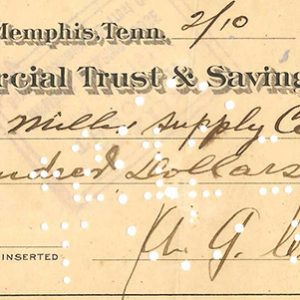 Memphis, Tenn. 2/10
rcial Trust & Saving
Miller Supply Co
undred Dollars
G.
INSERTED